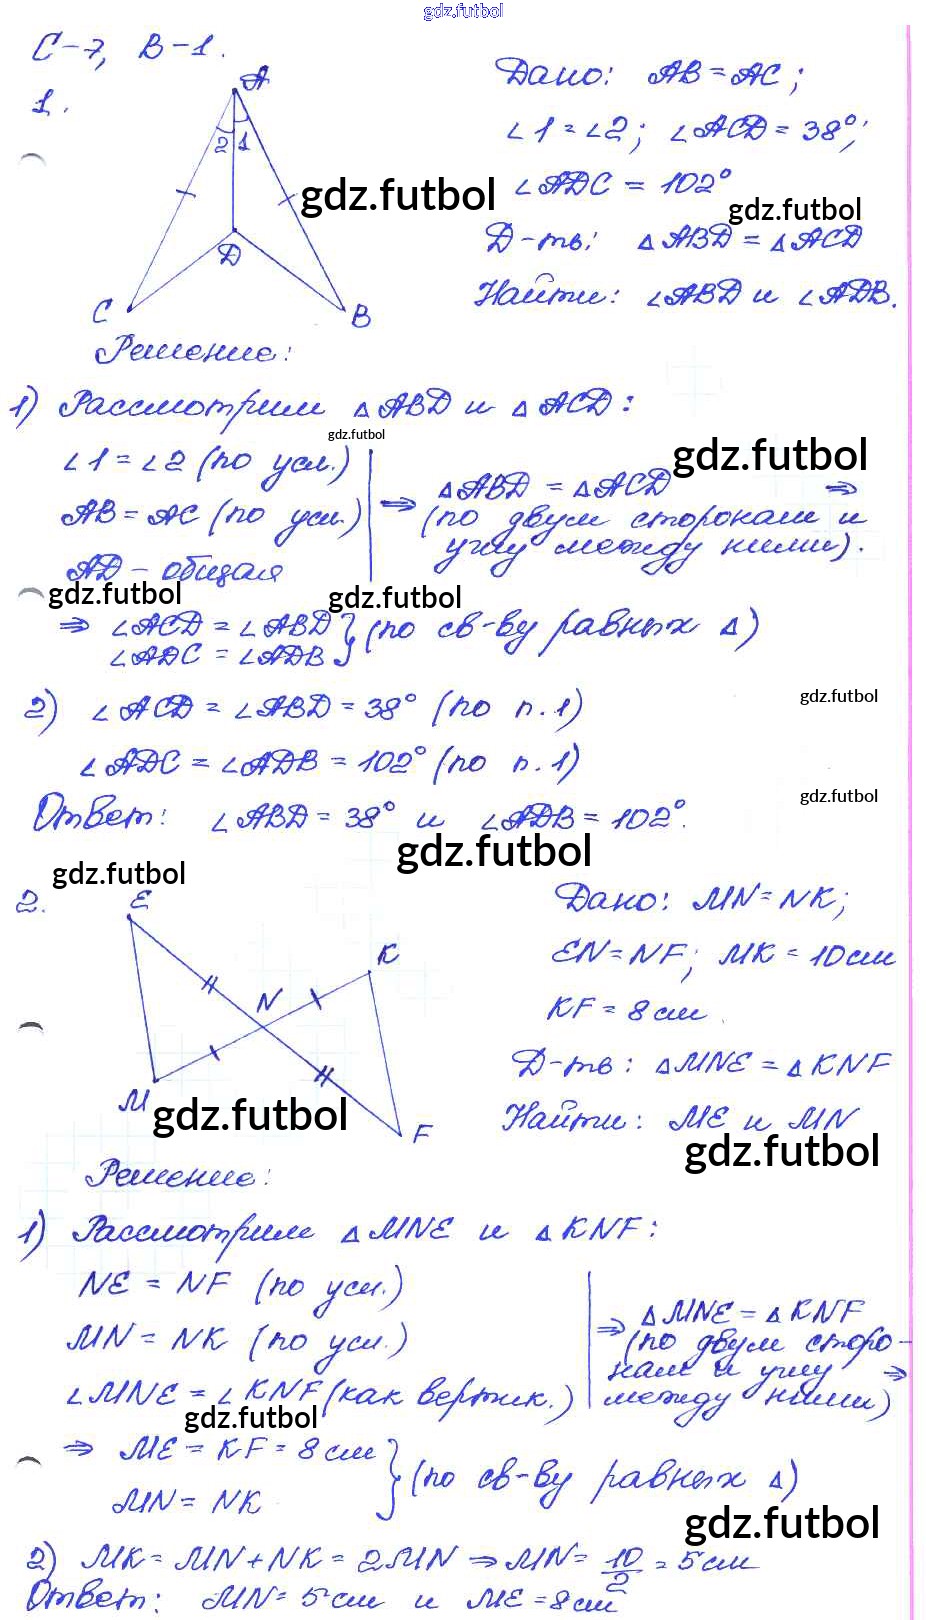 gdz.futbol
С-7, В-1.
1.
A
2 1
D
C
B
Дано: AB = AC;
∠1 = ∠2; ∠ACD = 38°;
∠ADC = 102°
gdz.futbol
gdz.futbol
Д-ть: △ABD = △ACD
Найти: ∠ABD и ∠ADB.
Решение:
1) Рассмотрим △ABD и △ACD:
gdz.futbol
∠1 = ∠2 (по усл.)
gdz.futbol
AB = AC (по усл.)
AD - общая
⇒ △ABD = △ACD ⇒
(по двум сторонам и
углу между ними).
gdz.futbol
gdz.futbol
⇒ ∠ACD = ∠ABD
∠ADC = ∠ADB } (по св-ву равных △)
2) ∠ACD = ∠ABD = 38° (по п.1)
gdz.futbol
∠ADC = ∠ADB = 102° (по п.1)
gdz.futbol
Ответ: ∠ABD = 38° и ∠ADB = 102°.
gdz.futbol
gdz.futbol
2.
E
K
N
M
F
Дано: MN = NK;
EN = NF; MK = 10 см
KF = 8 см
Д-ть: △MNE = △KNF
Найти: ME и MN
gdz.futbol
gdz.futbol
Решение:
1) Рассмотрим △MNE и △KNF:
NE = NF (по усл.)
MN = NK (по усл.)
∠MNE = ∠KNF (как вертик.)
⇒ △MNE = △KNF
(по двум сторо-
нам и углу ⇒
между ними)
gdz.futbol
⇒ ME = KF = 8 см
MN = NK } (по св-ву равных △)
gdz.futbol
2) MK = MN + NK = 2MN ⇒ MN = 10/2 = 5 см
Ответ: MN = 5 см и ME = 8 см